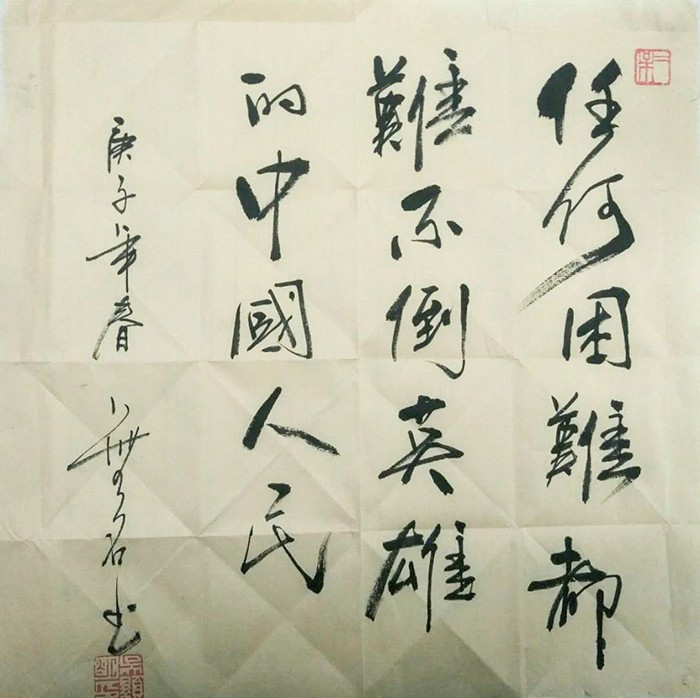 任何困難都
難不倒英雄
的中國人民
庚子年春
書